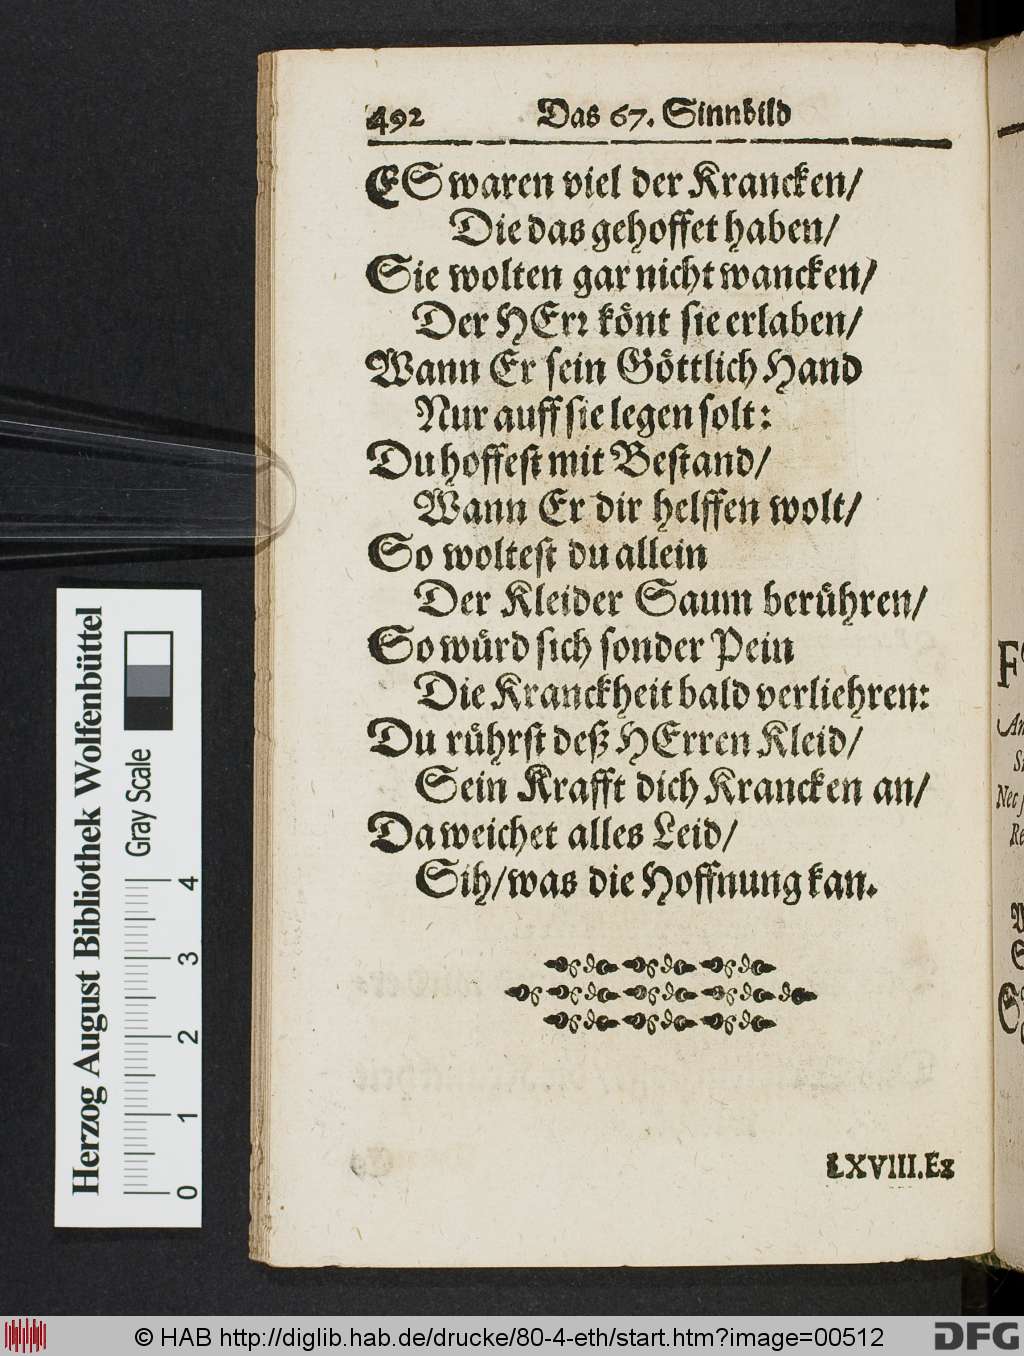 492 Das 67. Sinnbild
ES waren viel der Krancken/
Die das gehoffet haben/
Sie wolten gar nicht wancken/
Der HErꝛ könt sie erlaben/
Wann Er sein Göttlich Hand
Nur auff sie legen solt:
Du hoffest mit Bestand/
Wann Er dir helffen wolt/
So woltest du allein
Der Kleider Saum berühren/
So würd sich sonder Pein
Die Kranckheit bald verliehren:
Du rührst deß HErren Kleid/
Sein Krafft dich Krancken an/
Da weichet alles Leid/
Sih/was die Hoffnung kan.
LXVIII.Ex
Herzog August Bibliothek Wolfenbüttel
Gray Scale
0 1 2 3 4
© HAB http://diglib.hab.de/drucke/80-4-eth/start.htm?image=00512
DFG